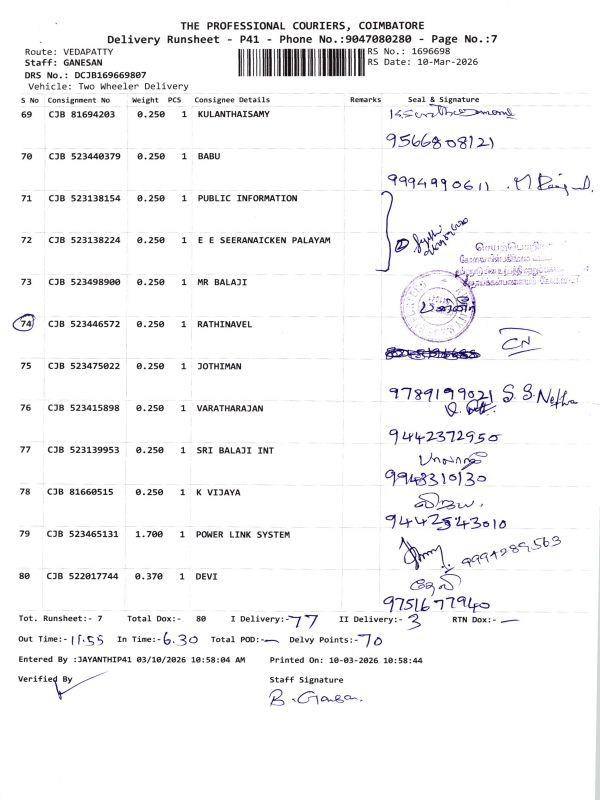 THE PROFESSIONAL COURIERS, COIMBATORE
Delivery Runsheet - P41 - Phone No.:9047080280 - Page No.:7
Route: VEDAPATTY RS No.: 1696698
Staff: GANESAN RS Date: 10-Mar-2026
DRS No.: DCJB169669807
Vehicle: Two Wheeler Delivery
S No Consignment No Weight PCS Consignee Details Remarks Seal & Signature
69 CJB 81694203 0.250 1 KULANTHAISAMY
9566808121
70 CJB 523440379 0.250 1 BABU
9994990611
71 CJB 523138154 0.250 1 PUBLIC INFORMATION
72 CJB 523138224 0.250 1 E E SEERANAICKEN PALAYAM
73 CJB 523498900 0.250 1 MR BALAJI
74 CJB 523446572 0.250 1 RATHINAVEL
CN
75 CJB 523475022 0.250 1 JOTHIMAN
9789199021 S.S.Netha
76 CJB 523415898 0.250 1 VARATHARAJAN
9442372950
77 CJB 523139953 0.250 1 SRI BALAJI INT
பாலாஜி
9948310130
78 CJB 81660515 0.250 1 K VIJAYA
விஜய.
9442543010
79 CJB 523465131 1.700 1 POWER LINK SYSTEM
9994289563
80 CJB 522017744 0.370 1 DEVI
தேவி
9751677940
Tot. Runsheet:- 7 Total Dox:- 80 I Delivery:- 77 II Delivery:- 3 RTN Dox:- —
Out Time:- 11.55 In Time:- 6.30 Total POD:- — Delvy Points:- 70
Entered By :JAYANTHIP41 03/10/2026 10:58:04 AM Printed On: 10-03-2026 10:58:44
Verified By Staff Signature
B. Ganesan.